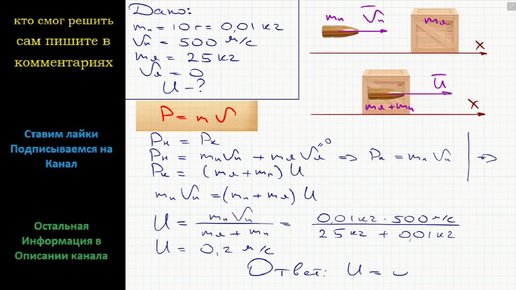 кто смог решить
сам пишите в
комментариях
Ставим лайки
Подписываемся на
Канал
Остальная
Информация в
Описании канала
Дано:
mп = 10 г = 0,01 кг
Vп = 500 м/с
mя = 25 кг
Vя = 0
U - ?
P = m V
Pн = Pк
Pн = mп Vп + mя Vя =0 => Pн = mп Vп
Pк = (mя + mп) U
mп Vп = (mп + mя) U
U = mп Vп / (mя + mп) = 0,01 кг · 500 м/с / (25 кг + 0,01 кг)
U = 0,2 м/с
Ответ: U =
mп Vп mя x
U mя+mп x